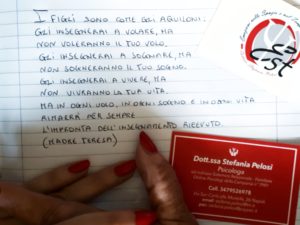 I FIGLI SONO COME GLI AQUILONI.
GLI INSEGNERAI A VOLARE, MA
NON VOLERANNO IL TUO VOLO.
GLI INSEGNERAI A SOGNARE, MA
NON SOGNERANNO IL TUO SOGNO.
GLI INSEGNERAI A VIVERE, MA
NON VIVRANNO LA TUA VITA.
MA IN OGNI VOLO, IN OGNI SOGNO E IN OGNI VITA
RIMARRÀ PER SEMPRE
L'IMPRONTA DELL'INSEGNAMENTO RICEVUTO.
(MADRE TERESA)
Dott.ssa Stefania Pelosi
Psicologa
Cell. 3479526978